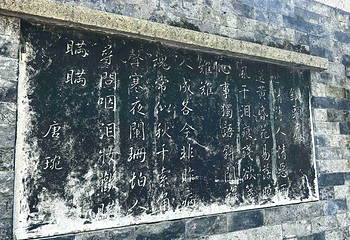 人情惡雨
送黃昏花易落曉
風干泪痕殘欲箋
心事獨語斜闌
難難
人成各今非昨病
魂常似秋千索角
聲寒夜闌珊怕人
尋問咽泪妝歡瞞
瞞瞞
唐琬